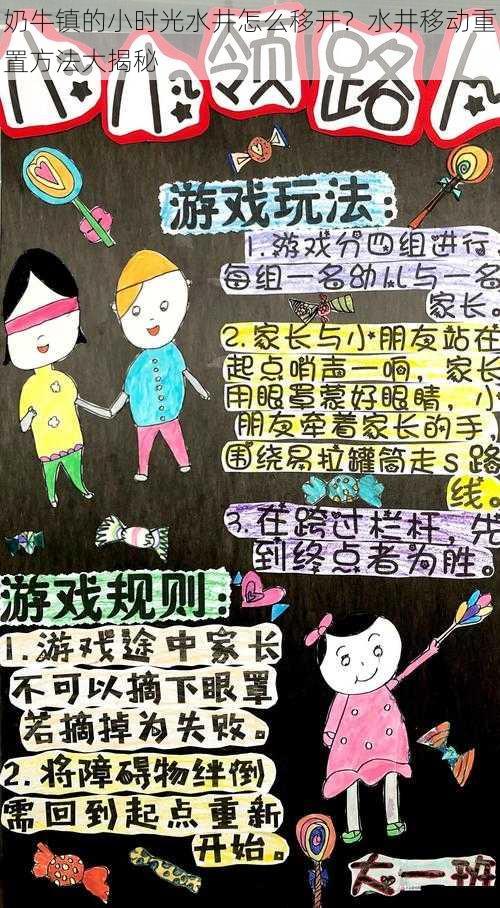 奶牛镇的小时光水井怎么移开？水井移动重
置方法大揭秘
小小领路人
游戏玩法：
1.游戏分四组进行，
每组一名幼儿与一名
家长。
2.家长与小朋友站在
起点哨声一响，家长
用眼罩蒙好眼睛，小
朋友牵着家长的手，
围绕易拉罐筒走s路
线。
3.在跨过栏杆，先
到终点者为胜。
游戏规则：
1.游戏途中家长
不可以摘下眼罩
若摘掉为失败。
2.将障碍物绊倒
需回到起点重新
开始。
大一班